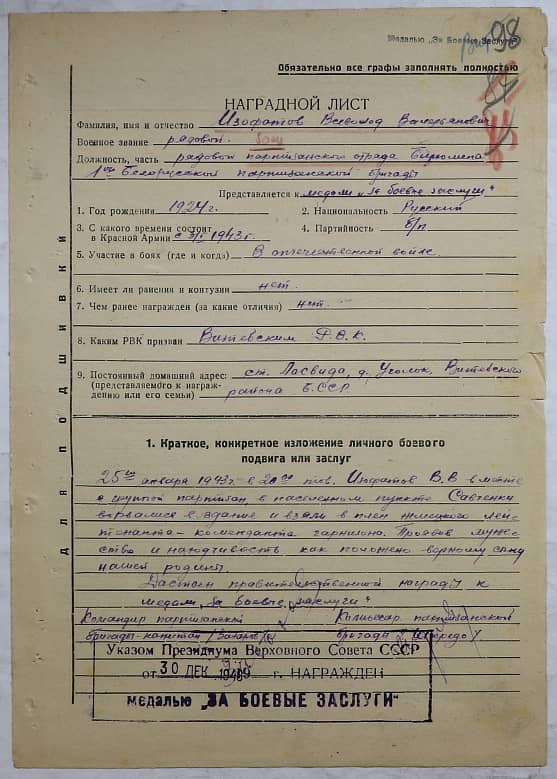 Медалью „За Боевые Заслуги"
98
Обязательно все графы заполнять полностью
НАГРАДНОЙ ЛИСТ
Фамилия, имя и отчество Изофатов Всеволод Валерьянович
Военное звание рядовой
Должность, часть рядовой партизанского отряда
1ой Белорусской партизанской бригады
Представляется к медали „За боевые заслуги"
1. Год рождения 1924 г.
2. Национальность Русский
3. С какого времени состоит
в Красной Армии 1943 г.
4. Партийность б/п
5. Участие в боях (где и когда) В отечественной войне.
6. Имеет ли ранения и контузии нет.
7. Чем ранее награжден (за какие отличия) нет.
8. Каким РВК призван
9. Постоянный домашний адрес: ст. Лосвида, д. Уголок, Витебского
(представляемого к награж-
дению или его семьи) района БССР
для подшивки
1. Краткое, конкретное изложение личного боевого
подвига или заслуг
25го января 1943 г. в тов. Изофатов В.В. вместе
с группой партизан в населенном пункте Савченки
ворвались в здание и взяли в плен немецкого лей-
тенанта - коменданта гарнизона. Проявив муже-
ство и находчивость как положено верному сыну
нашей родины.
Достоин правительственной награды к
медали „За боевые заслуги"
Командир партизанской Комиссар партизанской
бригады капитан бригады
Указом Президиума Верховного Совета СССР
от 30 ДЕК 1948 г. НАГРАЖДЕН
медалью „ЗА БОЕВЫЕ ЗАСЛУГИ"